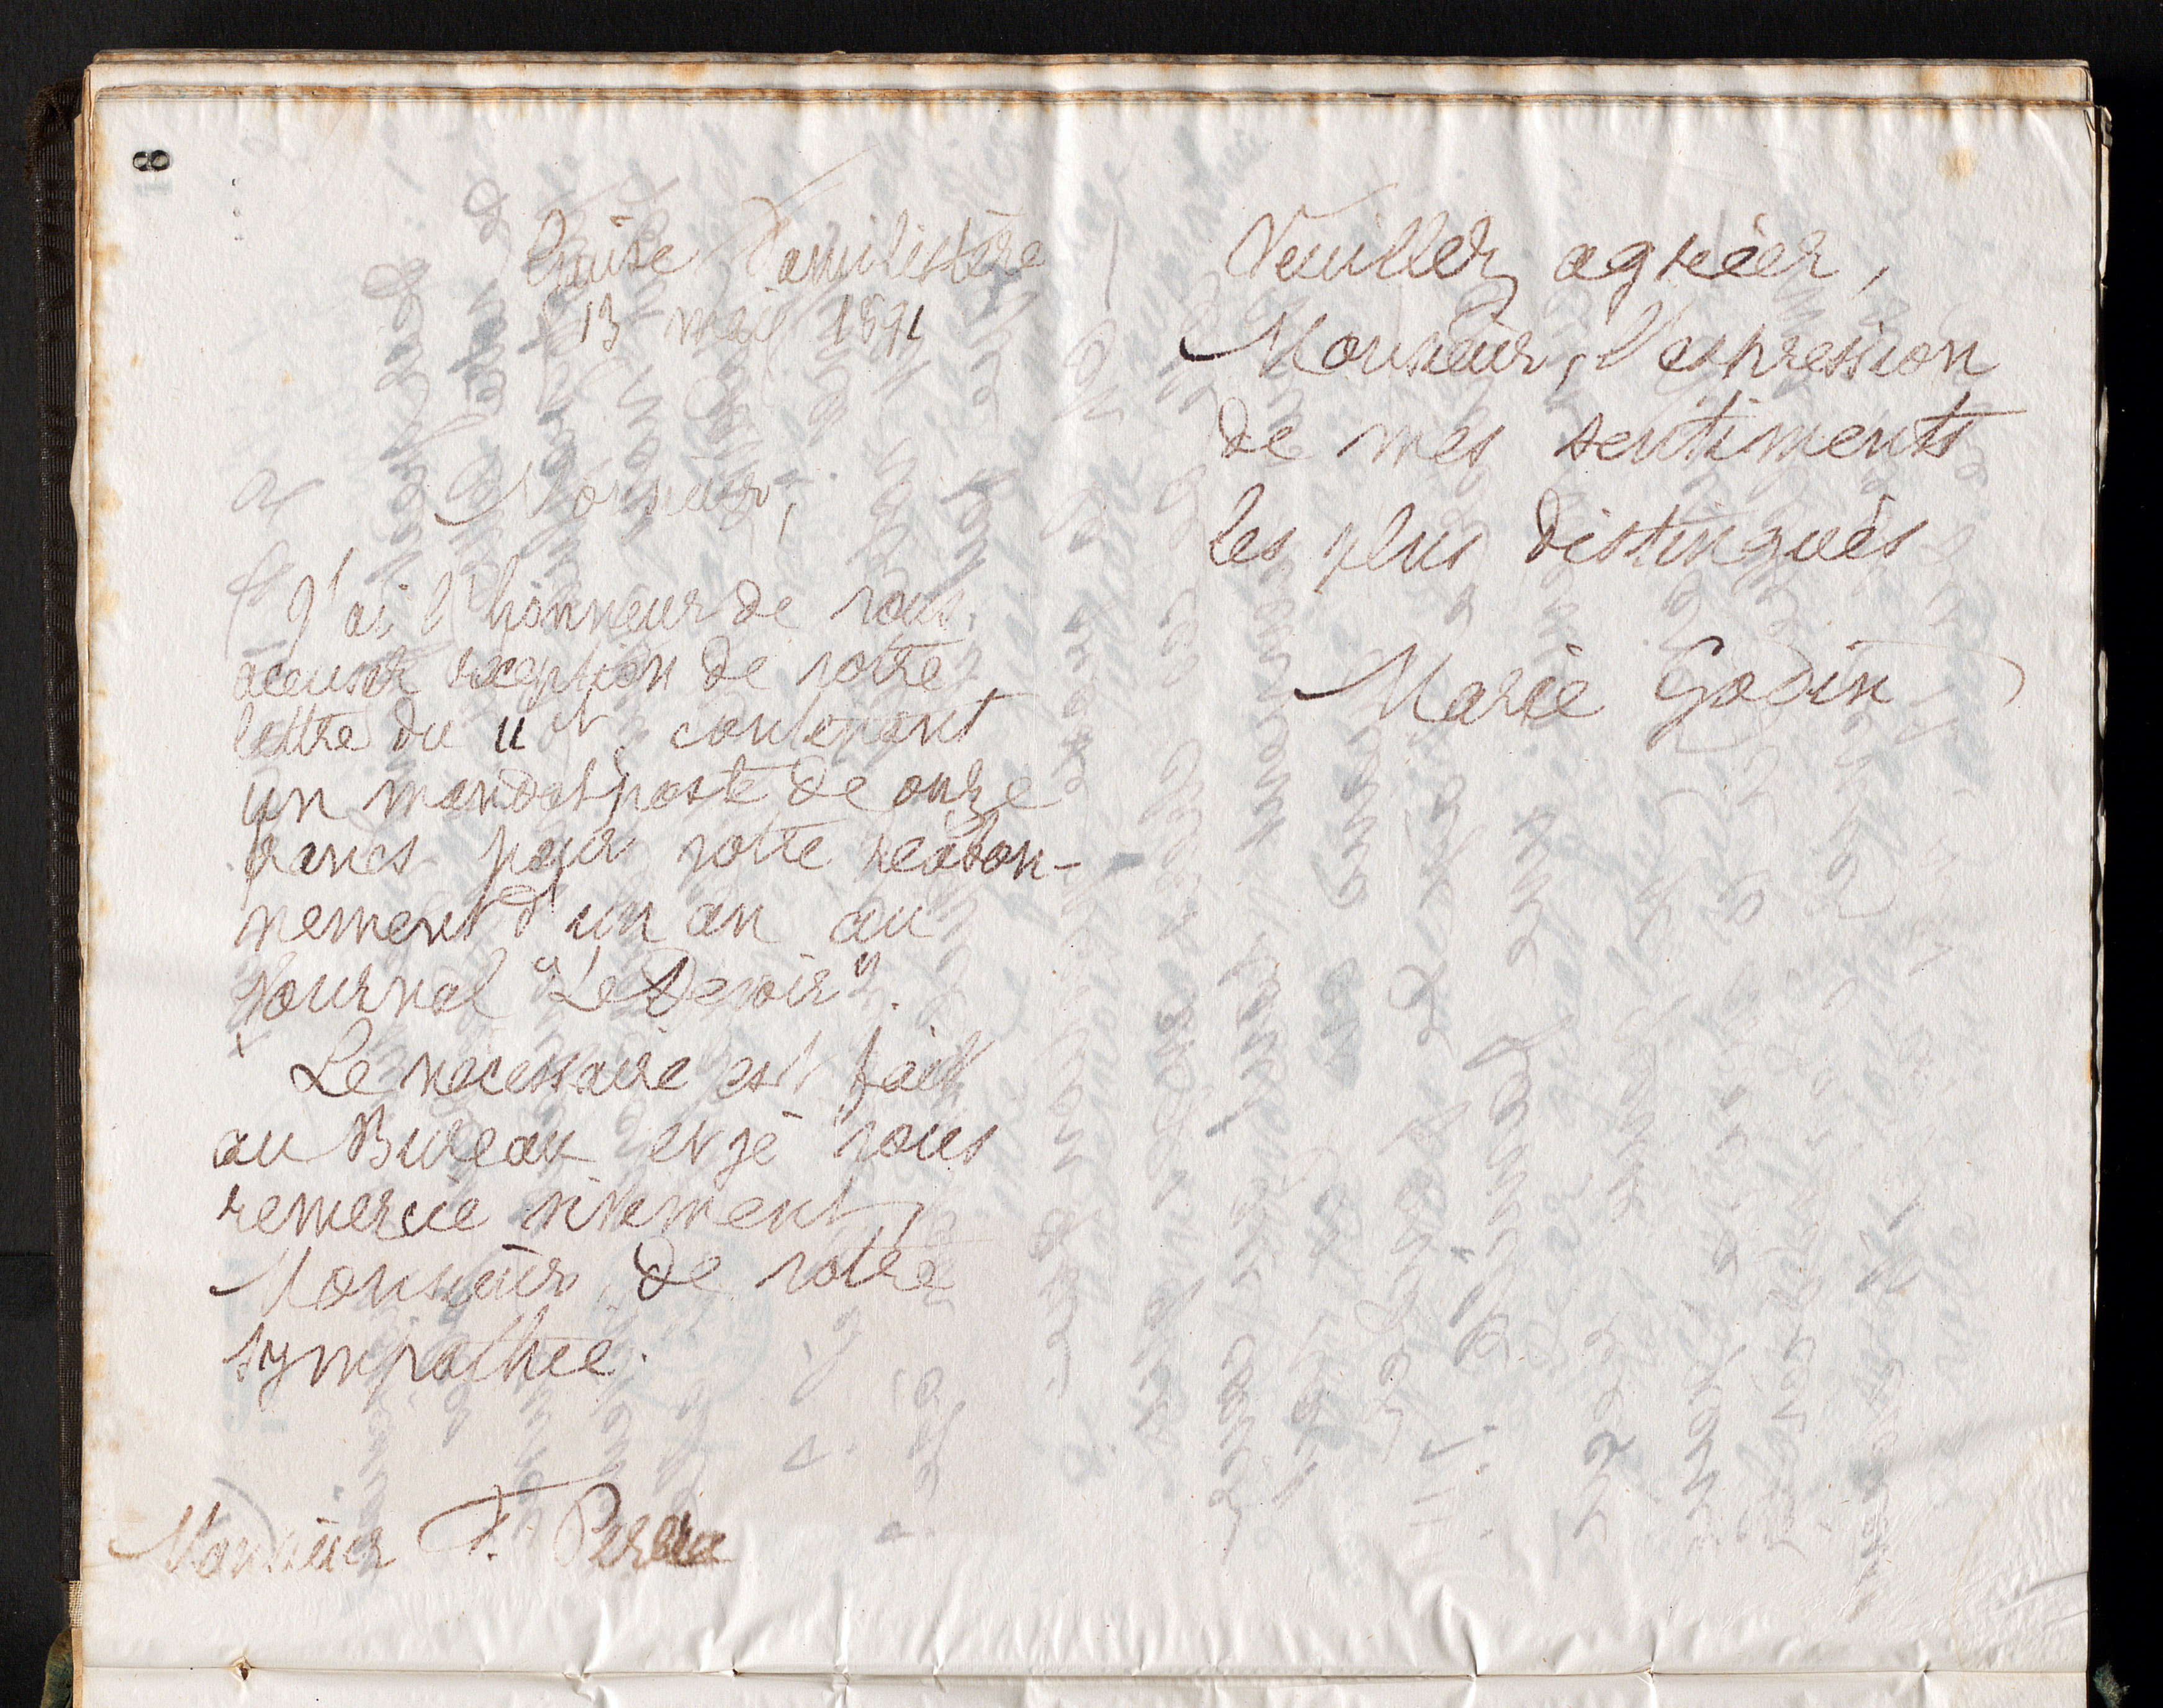 8
Guise Familistère
13 mai 1891
Monsieur,
J'ai l'honneur de vous
accuser réception de votre
lettre du 11 ct, contenant
un mandat poste de onze
francs pour votre réabon-
nement d'un an au
journal "Le Devoir".
Le nécessaire est fait
au Bureau et je vous
remercie vivement,
Monsieur, de votre
sympathie.
Monsieur F.
Veuillez agréer,
Monsieur, l'expression
de mes sentiments
les plus distingués
Marie Godin